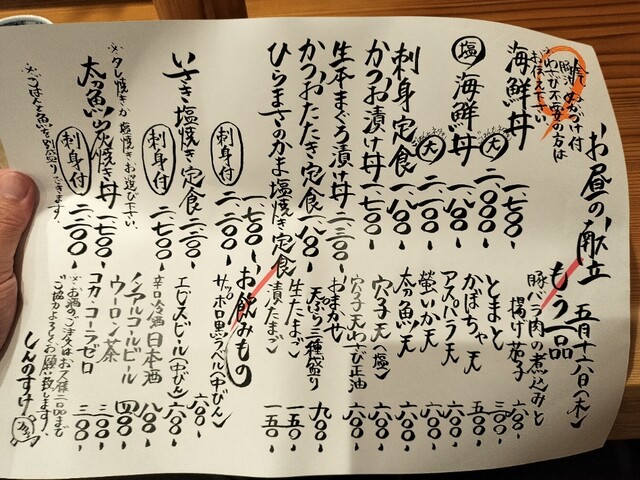 お昼の献立 五月十六日(木)
冷、豚汁、ぬか漬け付
※わさび不要の方は
お伝え下さい。
海鮮丼 一、七〇〇-
(大) 二、〇〇〇-
塩 海鮮丼 一、八〇〇-
(大) 二、一〇〇-
刺身定食 一、八〇〇-
かつお漬け丼 一、七〇〇-
生本まぐろ漬け丼 二、三〇〇-
かつおたたき定食 一、八〇〇-
ひらまさのかま塩焼き定食 一、七〇〇-
刺身付 二、二〇〇-
いさき塩焼き定食 二、二〇〇-
刺身付 二、七〇〇-
太刀魚の焼き丼 一、七〇〇-
刺身付 二、二〇〇-
※タレ焼きか塩焼きお選び下さい。
※ごはんと魚を別盛りできます。
もう一品
豚バラ肉の煮込みと
揚げ茄子 六〇〇-
とまと 三〇〇-
かぼちゃ天 五〇〇-
アスパラ天 六〇〇-
螢いか天 六〇〇-
太刀魚天 六〇〇-
穴子天(塩) 六〇〇-
穴子天わさび正油 六〇〇-
おまかせ
天ぷら三種盛り 九〇〇-
生たまご 一五〇-
漬たまご 一五〇-
お飲みもの
サッポロ黒ラベル(中びん) 六〇〇-
エビスビール(中びん) 六〇〇-
辛口冷酒 日本酒 八〇〇-
ノンアルコールビール 四〇〇-
ウーロン茶 三〇〇-
コカ・コーラゼロ 三〇〇-
※お酒のご注文はお一人様二品まで
ご協力よろしくお願い致します。
しんのすけ